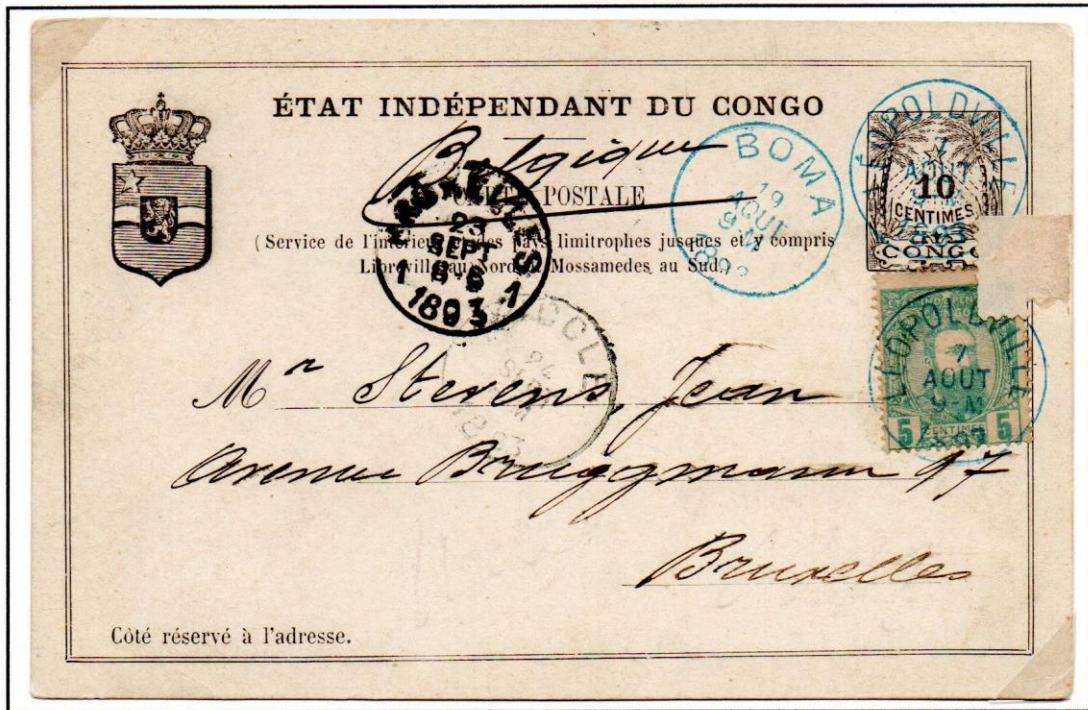 ÉTAT INDÉPENDANT DU CONGO
Belgique
CARTE POSTALE
(Service de l'intérieur et des pays limitrophes jusques et y compris
Libreville au Nord et Mossamedes au Sud.)
10
CENTIMES
CONGO
LÉOPOLDVILLE
7
AOUT
BOMA
19
AOUT
9-M
23
SEPT
1 1
1893
UCCLE
LÉOPOLDVILLE
7
AOUT
9-M
5 CENTIMES 5
Mr Stevens, Jean
Avenue Brugmann 97
Bruxelles
Côté réservé à l'adresse.